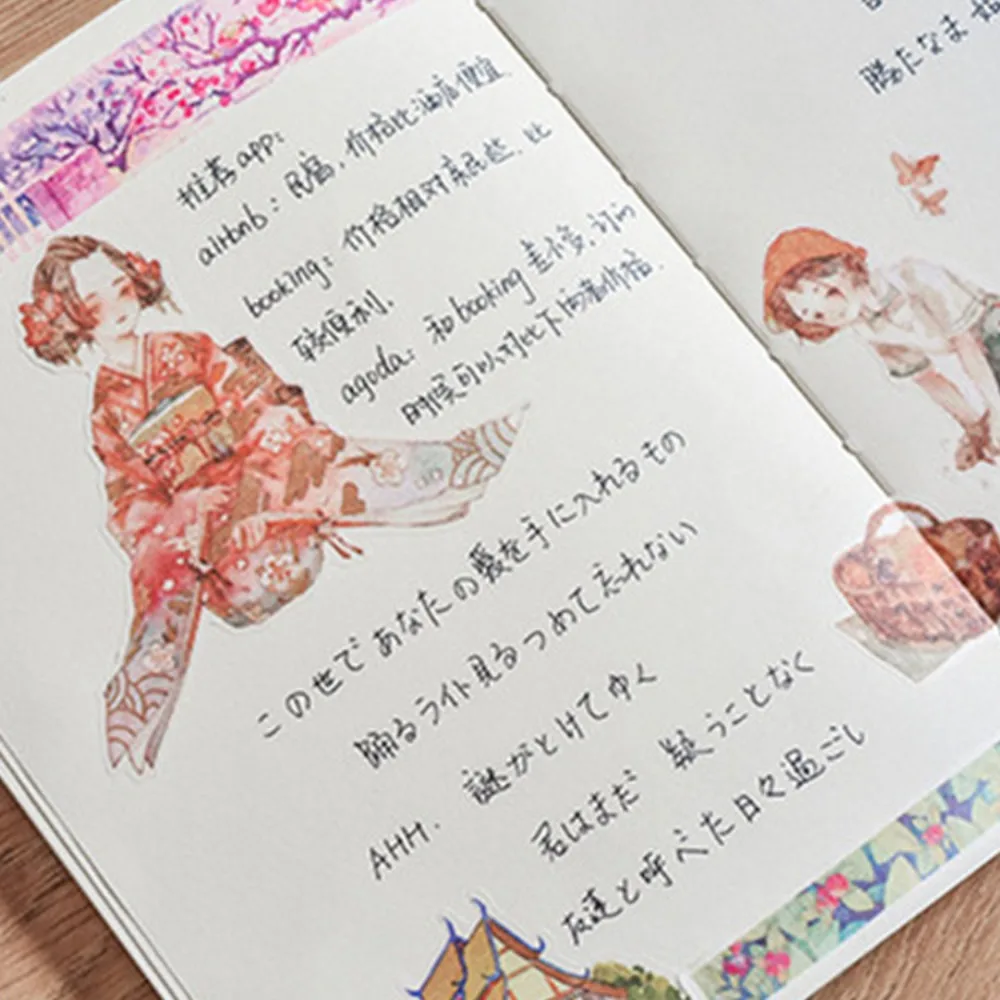 推荐app:
airbnb:民宿,价格比酒店便宜.
booking:价格相对亲民些.比
较便利.
agoda:和booking差不多,订的
时候可以对比下两者价格.
この世であなたの愛を手に入れるもの
踊るライト見るつめて忘れない
AHH. 謎がとけてゆく
君はまだ 疑うことなく
友達と呼べた日々過ごし
陽たなま